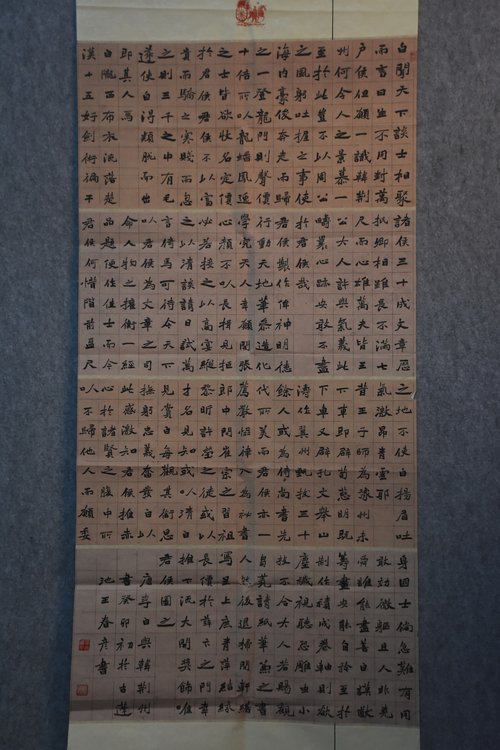 白聞天下談士相聚
而言曰生不用封萬
户侯但願一識韓荊
州何令人之景慕一
至於此豈不以周公
之風躬吐握之事使
海内豪俊奔走而歸
之一登龍門則聲價
十倍所以龍蟠鳳逸
之士皆欲收名定價
於君侯君侯不以富
貴而驕之寒賤而忽
之則三千之中有毛
遂使白得穎脱而出
即其人焉
白隴西布衣流落楚
漢十五好劍術徧干
諸侯三十成文章歷
抵卿相雖長不滿七
尺而心雄萬夫皆王
公大人許與氣義此
疇曩心跡安敢不盡
於君侯哉
君侯製作侔神明德
行動天地筆參造化
學究天人幸願開張
心顔不以長揖見拒
必若接之以高宴縱
之以清談請日試萬
言倚馬可待今天下
以君侯為文章之司
命人物之權衡一經
品題便作佳士而今
君侯何惜階前盈尺
之地不使白揚眉吐
氣激昂青雲耶
昔王子師為豫州未
下車即辟荀慈明既
下車又辟孔文舉山
濤作冀州甄拔三十
餘人或為侍尚書先
代所美而君侯亦一
薦嚴協律入為秘書
郎中間崔宗之習祖
黎昕許瑩之徒或以
才名見知或以清白
見賞白每觀其銜恩
撫躬忠義奮發白以
此感激知君侯推赤
心於諸賢之腹中所
以不歸他人而願委
身國士倘急難有用
敢効微軀且人非堯
舜誰能盡善白謨猷
籌畫安能自矜至於
制作積成卷軸則欲
塵穢視聽恐雕蟲小
技不合大人若賜觀
芻蕘請紙筆兼之書
人然後退掃閒軒繕
寫呈上庶青萍結緑
長價於薛卞之門幸
推下流大開獎飾唯
君侯圖之
唐李白與韓荊州
書癸卯初於古蓮
池王春彥書